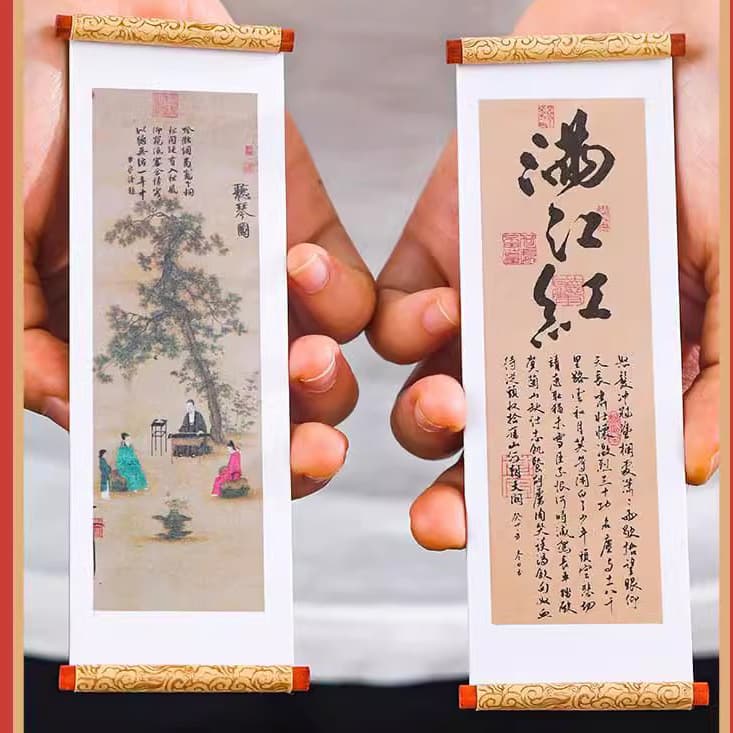 吟徵調商竈下桐
松間疑有入松風
仰窺低審含情客
以聽無絃一弄中
臣京謹題
聽琴圖
滿江紅
怒髮冲冠憑欄處瀟瀟雨歇抬望眼仰
天長嘯壯懷激烈三十功名塵与土八千
里路雲和月莫等閒白了少年頭空悲切
靖康恥猶未雪臣子恨何時滅駕長車踏破
賀蘭山缺壯志飢餐胡虜肉笑談渴飲匈奴血
待從頭收拾舊山河朝天闕